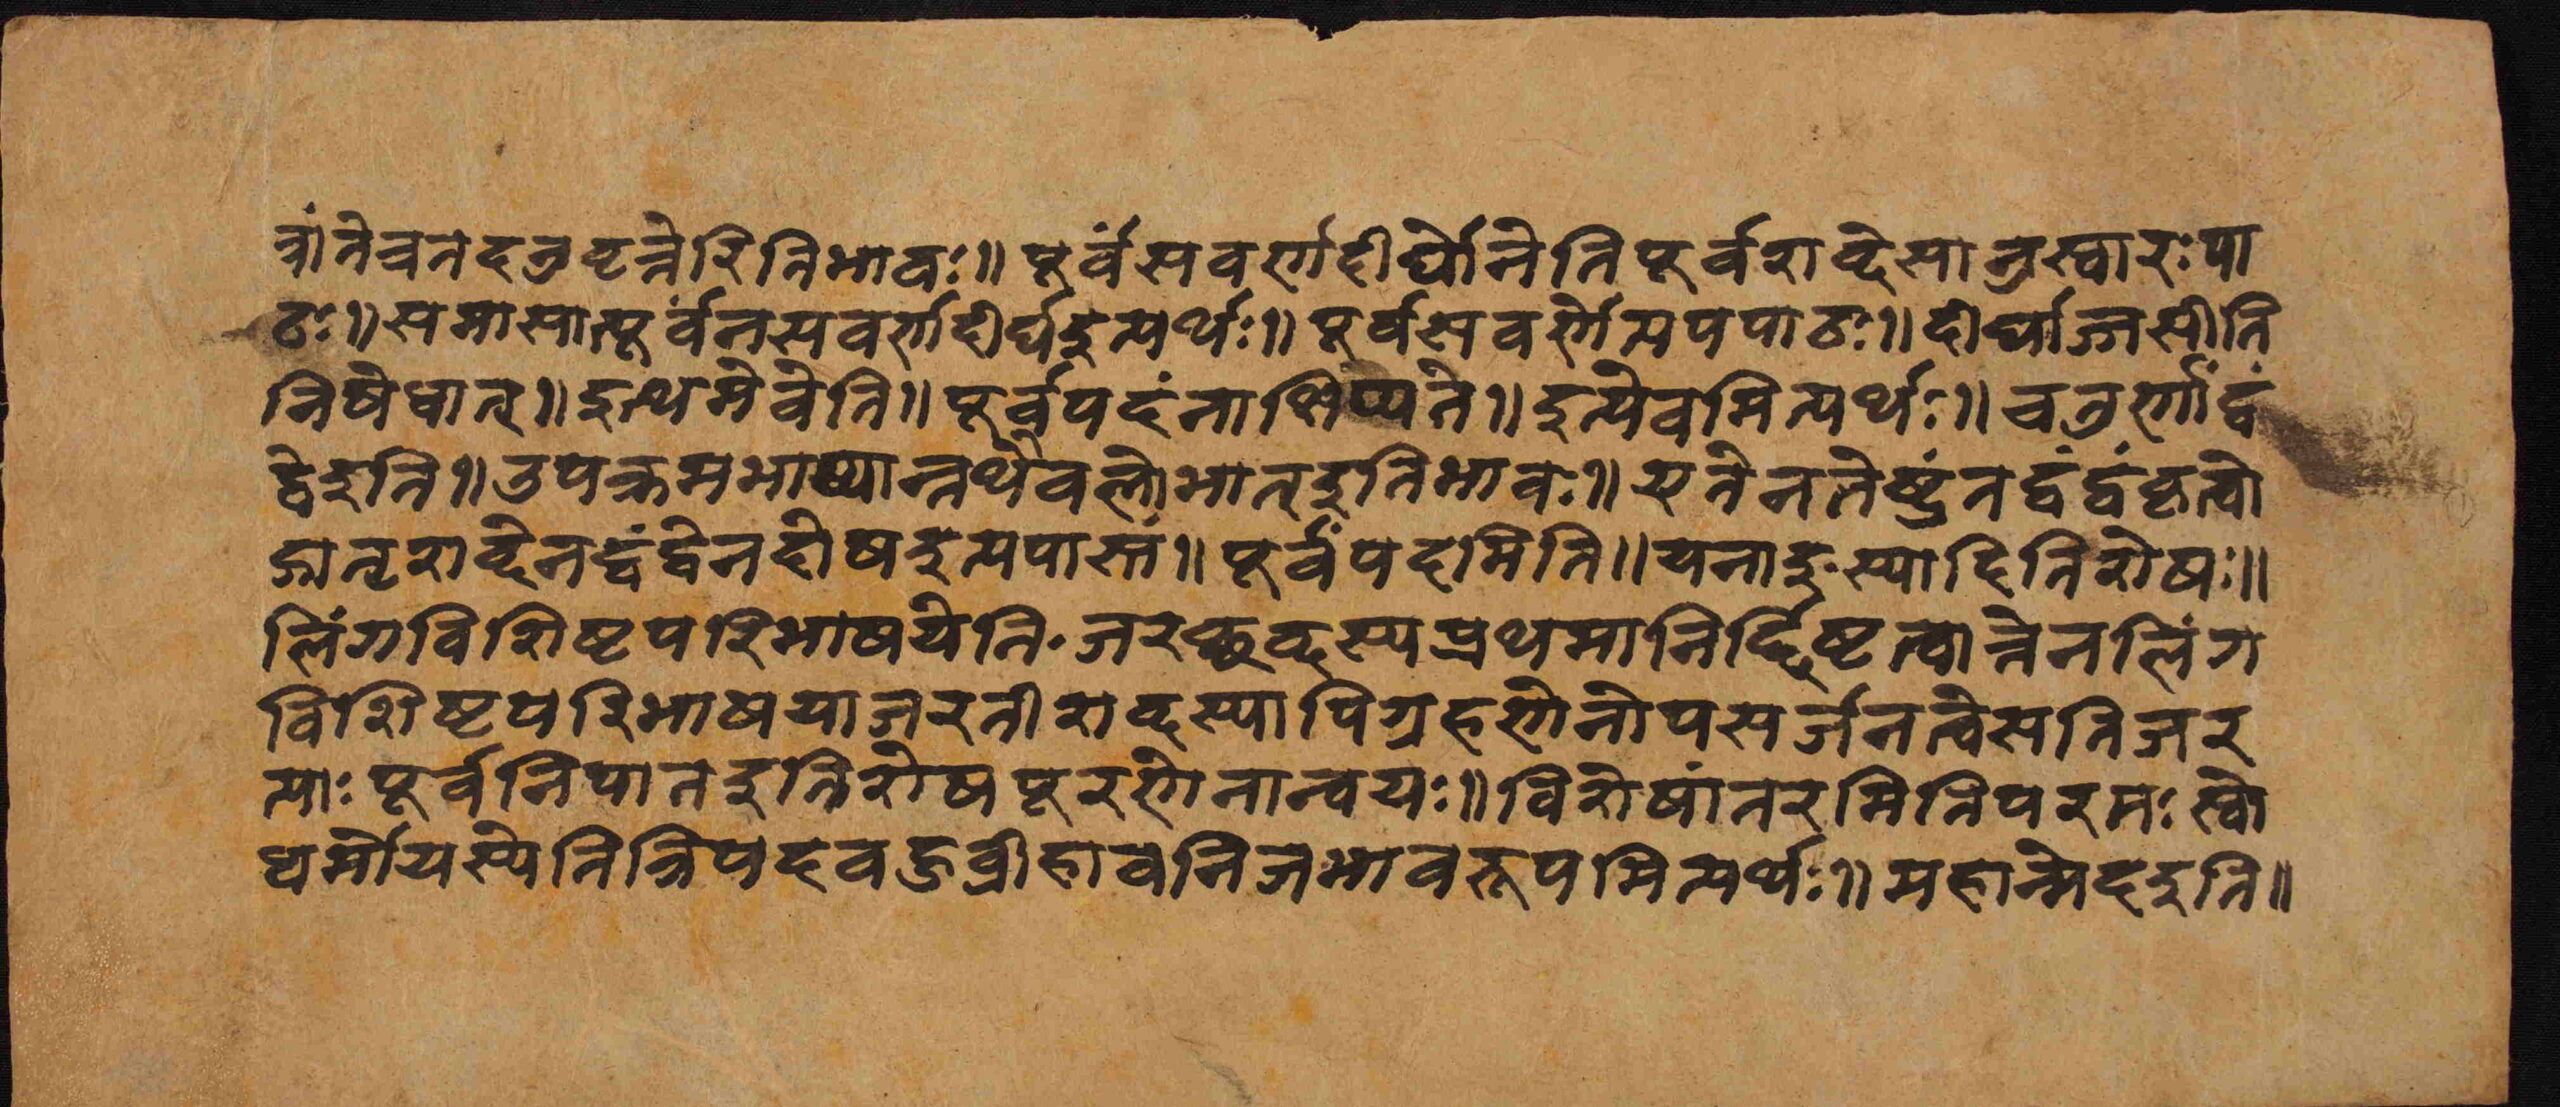 त्रांतेचनदनुवृत्तेरितिभावः॥ पूर्वंसवर्णदीर्घोनेतिपूर्वशब्देसानुस्वारःपा
ठः॥ समासात्पूर्वंनसवर्णदीर्घइत्यर्थः॥ पूर्वसवर्णेत्यपपाठः॥ दीर्घाज्जसीति
निषेधात्॥ इत्थमेवेति॥ पूर्वपदंनाक्षिप्यते॥ इत्येवमित्यर्थः॥ चतुर्णांद्वं
द्वेइति॥ उपक्रमभाष्यान्नर्थैवलोभात्इतिभावः॥ एतेनतेष्टुंनद्वंद्वंकृत्वो
ज्ञातृशब्देनद्वंद्वेनदोषइत्यपास्तं॥ पूर्वंपदमिति॥ यनाङ्स्यादितिशेषः॥
लिंगविशिष्टपरिभाषयेति॰ जरच्छब्दस्यप्रथमानिर्द्दिष्टत्वात्तेनलिंग
विशिष्टपरिभाषयाजरतीशब्दस्यापिग्रहणेनोपसर्जनत्वेसतिजर
त्याः पूर्वनिपातइतिशेषपूरणेनान्वयः॥ विशेषांतरमितिपरमः स्वो
धर्मोयस्येतित्रिपदबहुव्रीहावनिजभावरूपमित्यर्थः॥ महान्मेदइति॥